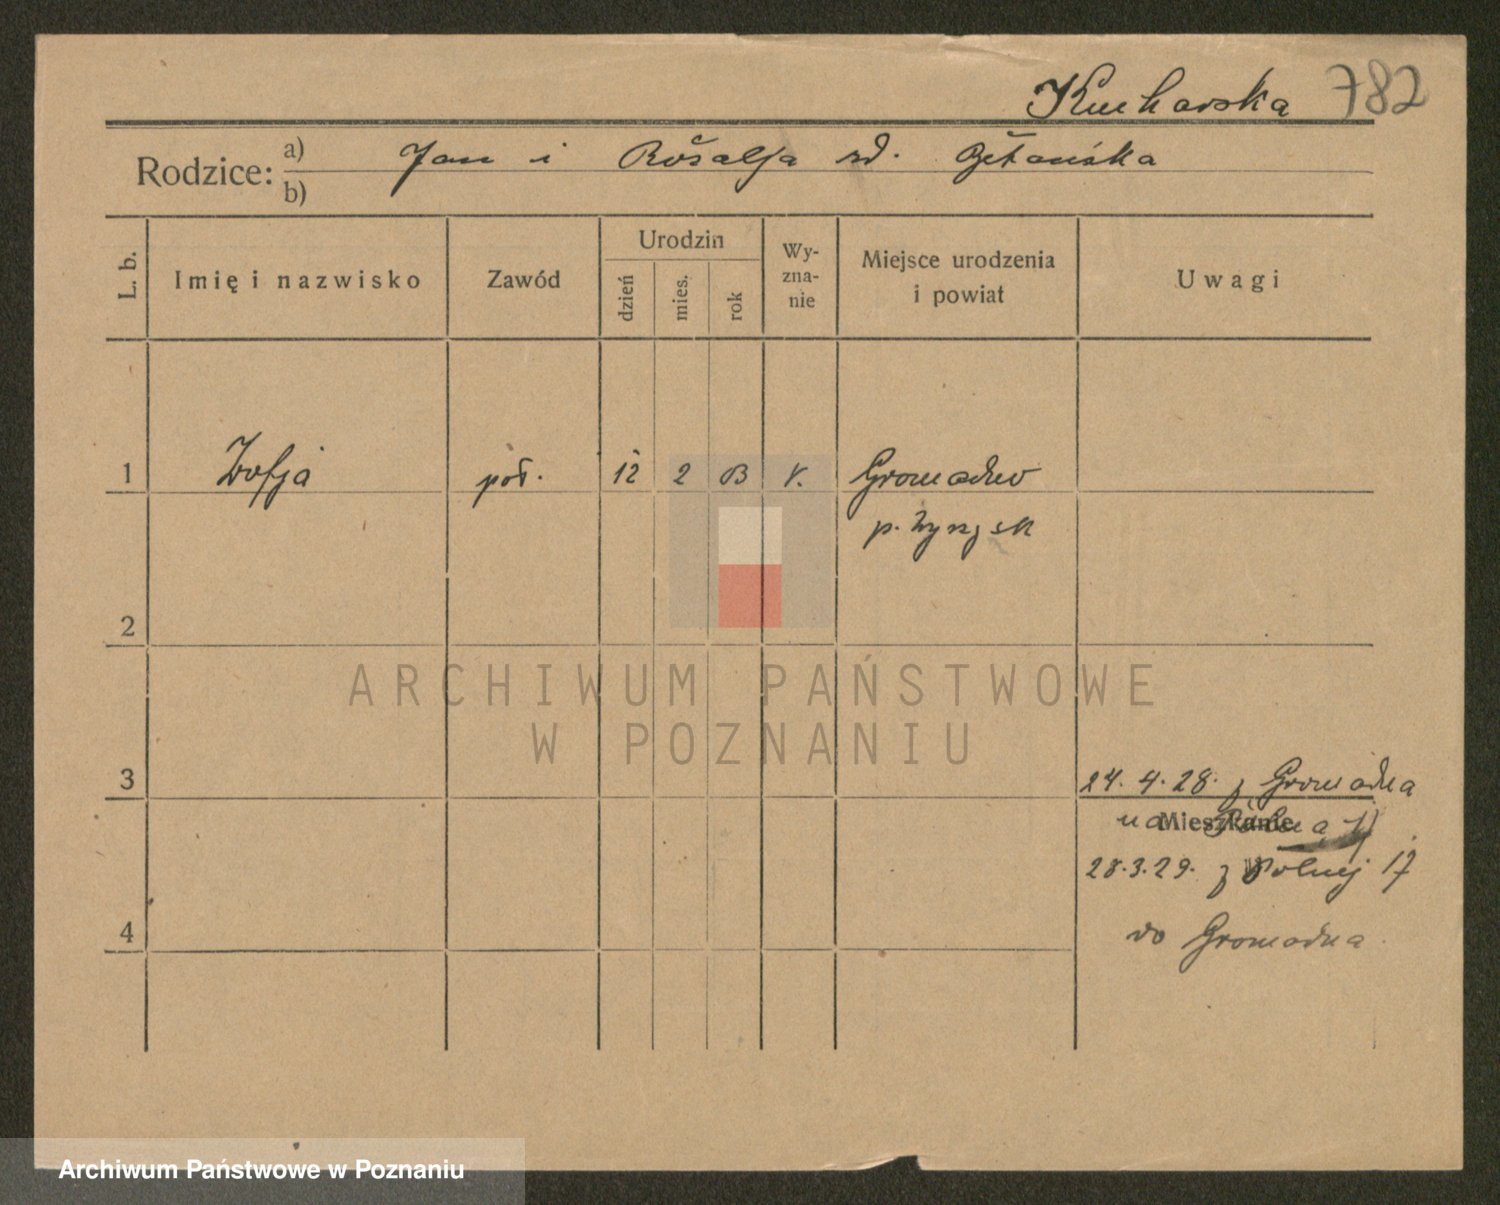 Kucharska 782
Rodzice: a) Jan i Rozalja zd.
b)
L. b. Imię i nazwisko Zawód Urodzin dzień mies. rok Wyznanie Miejsce urodzenia i powiat Uwagi
1 Zofja poł. 12 2 13 r. Gromadno
p. Wyrzysk
2
ARCHIWUM PAŃSTWOWE
W POZNANIU
3 24.4.28. z Gromadna
Mieszkanie
na Polną 17
28.3.29. z Polnej 17
4 do Gromadna
Archiwum Państwowe w Poznaniu